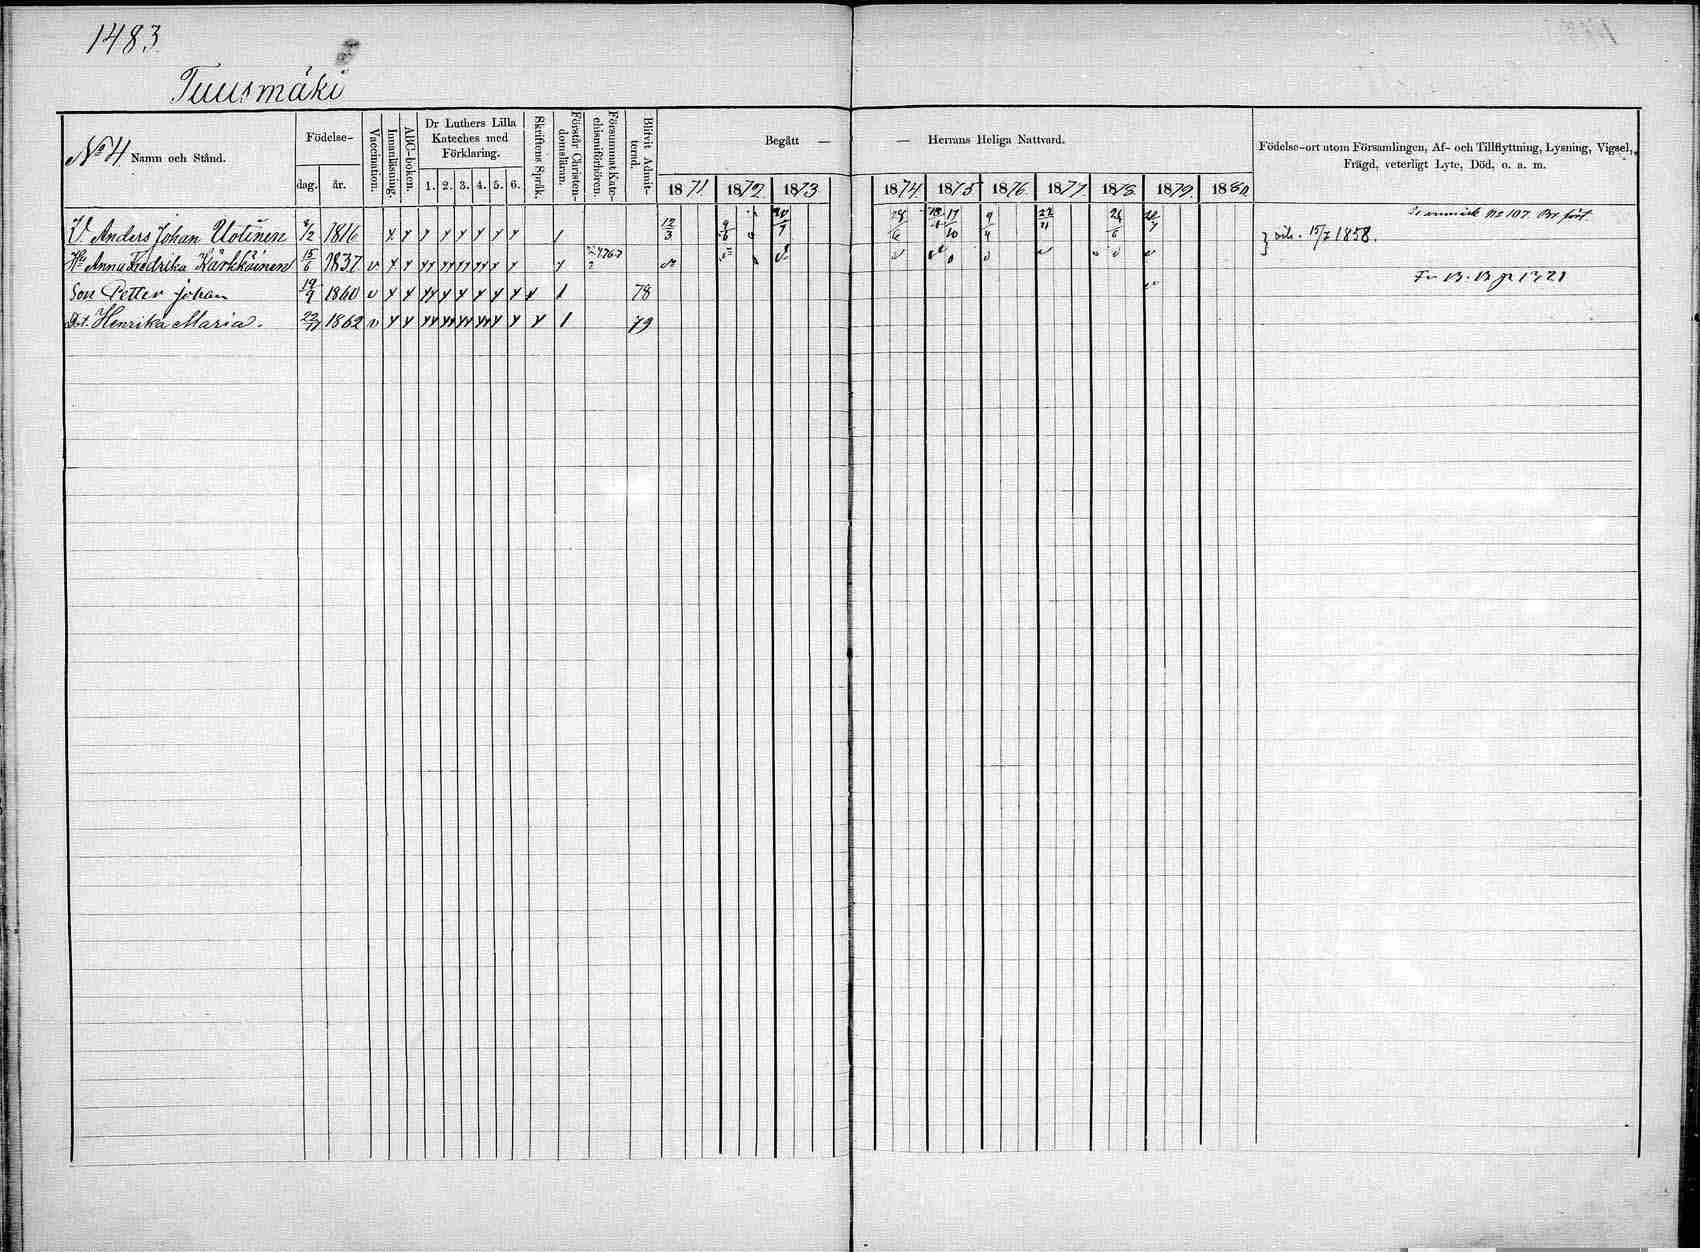 1483
Tuusmäki
No 4 Namn och Stånd.
Födelse-
dag. år.
Vaccination.
Innanläsning.
ABC-boken.
Dr Luthers Lilla
Kateches med
Förklaring.
1. 2. 3. 4. 5. 6.
Skriftens Språk.
Förstår Christen-
domsläran.
Försummat Kate-
chismiförhören.
Blifvit Admit-
terad.
Begått —
1871. 1872. 1873
— Herrans Heliga Nattvard.
1874. 1875 1876. 1877 1878. 1879. 1880
Födelse-ort utom Församlingen, Af- och Tillflyttning, Lysning, Vigsel,
Frägd, veterligt Lyte, Död, o. a. m.
V. Anders Johan Uotinen 1816 12/3 9/6
} vih. 15/7 1858.
Hu Anna Fredrika Kärkkäinen 15/6 1837 v
Son Petter Johan 19/9 1860 v 78
Dot. Henrika Maria. 1862 v 79